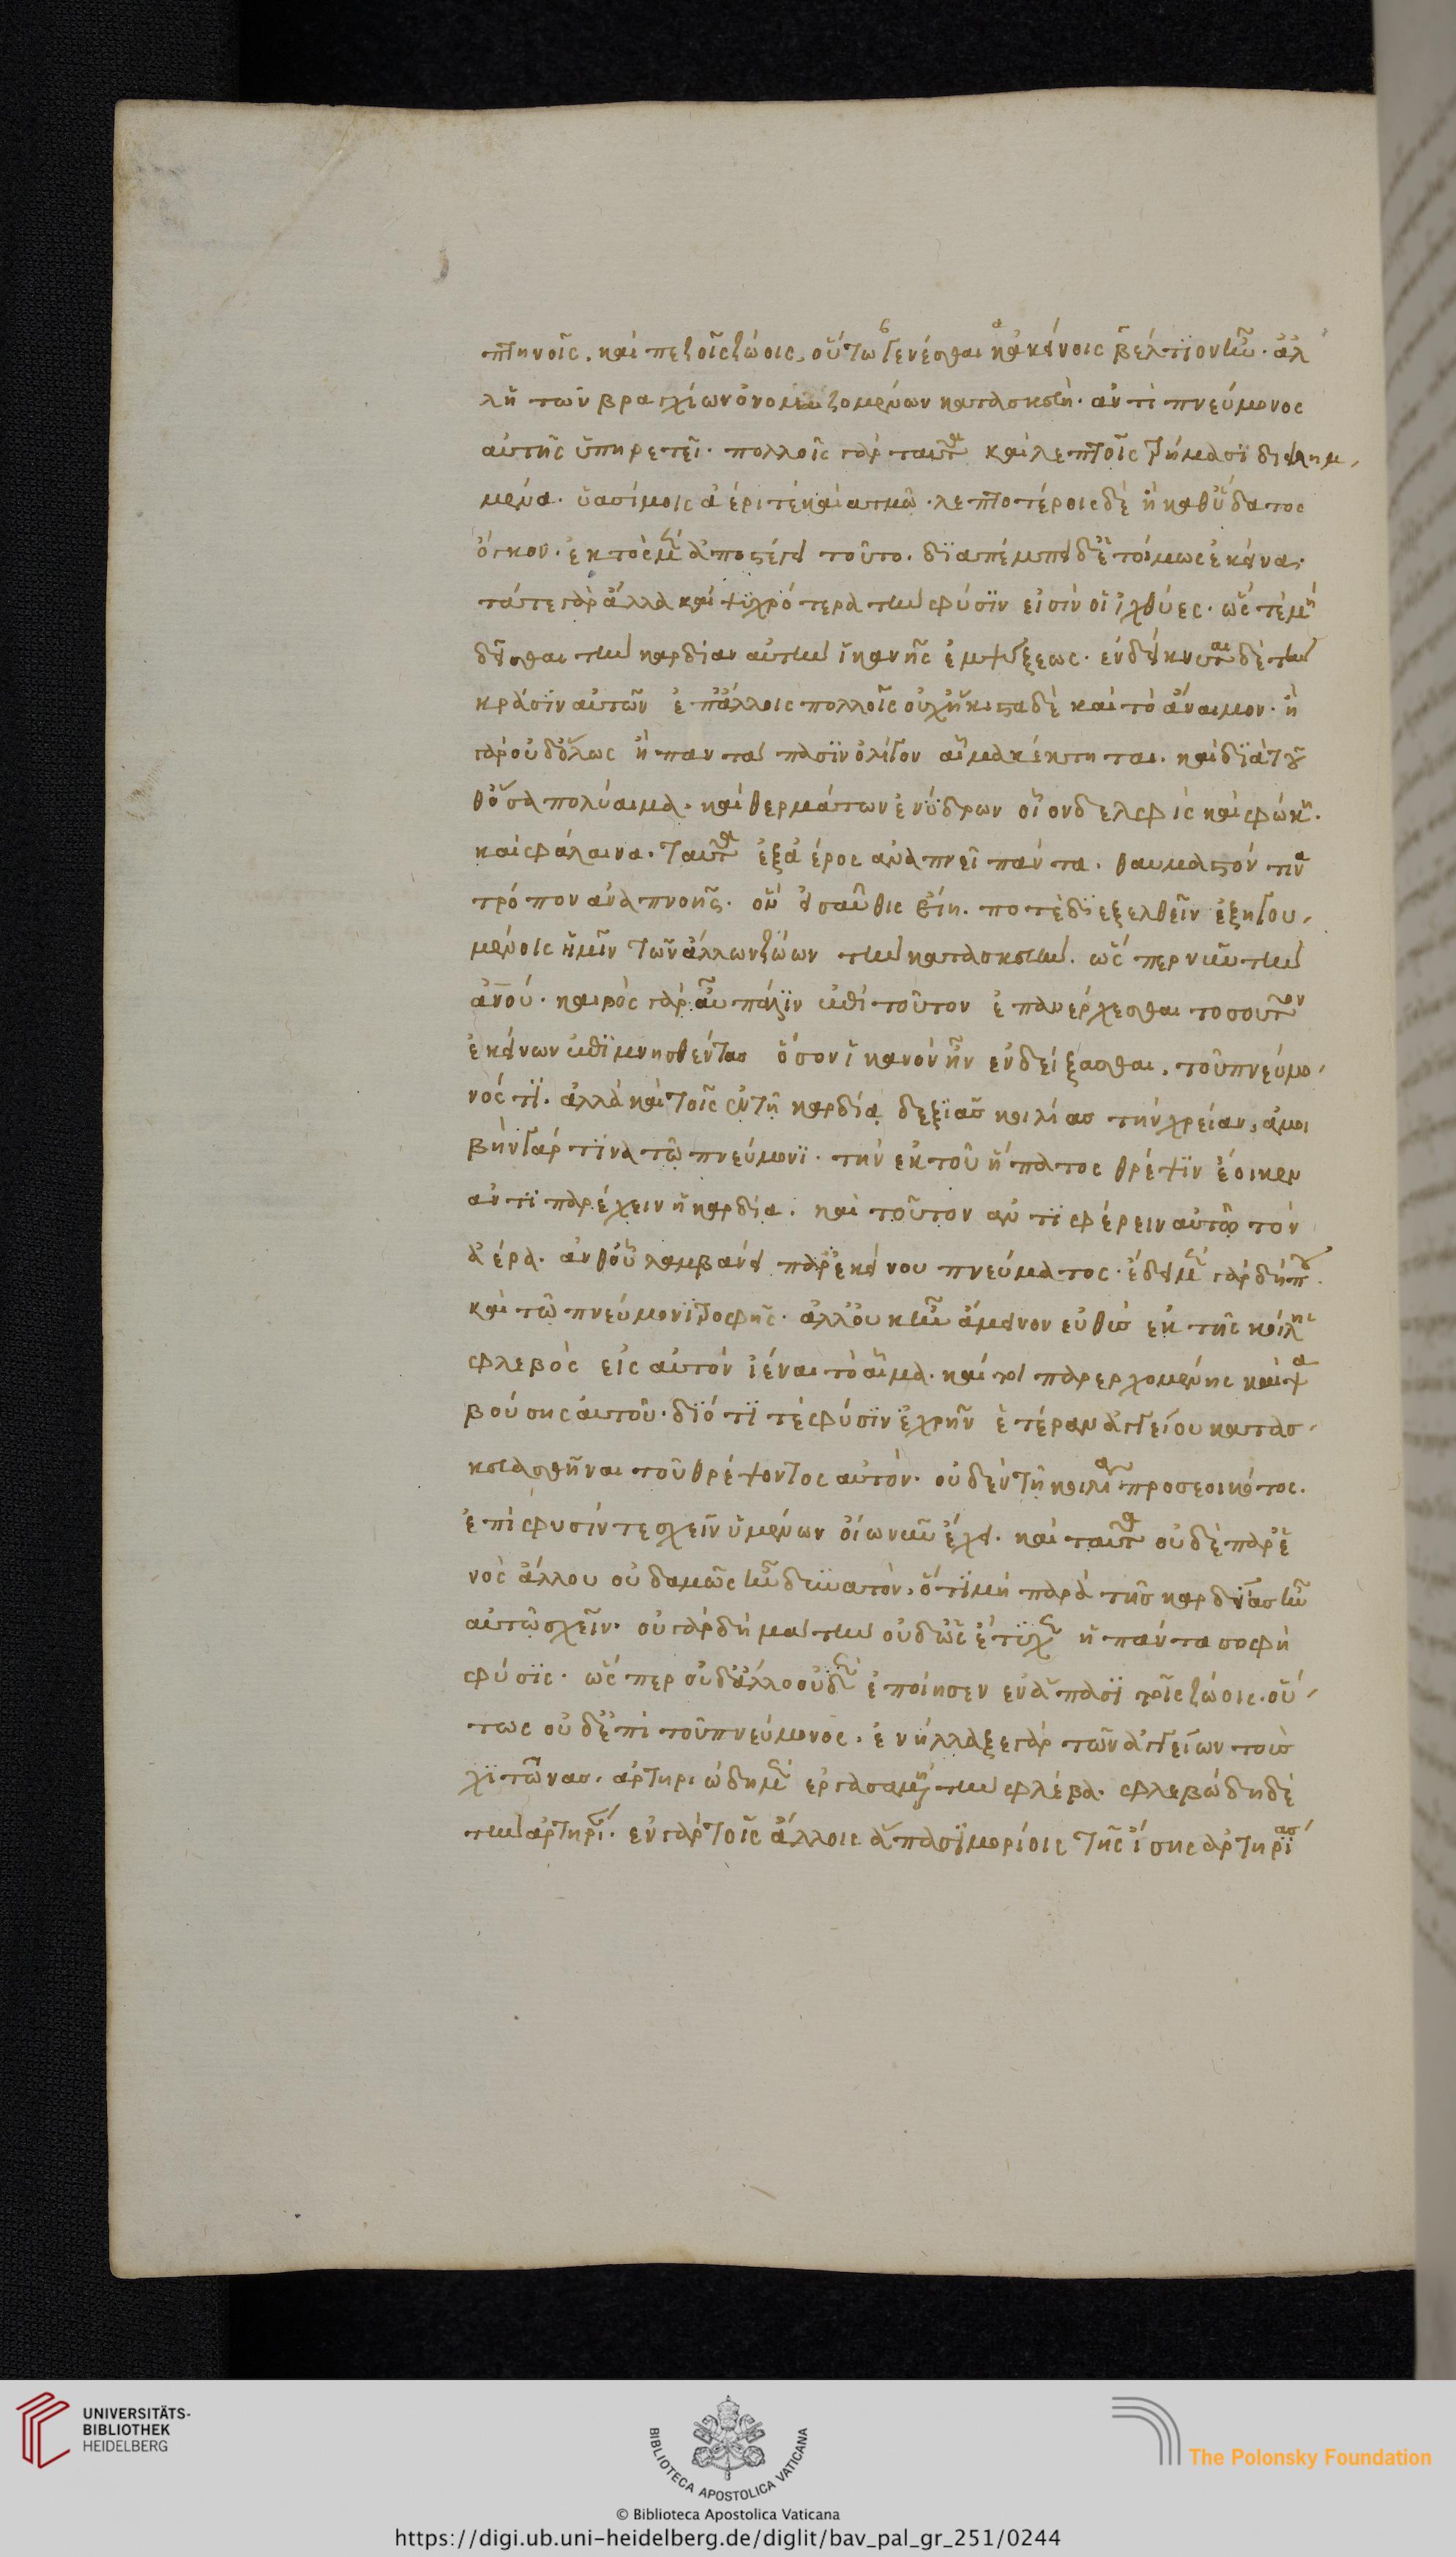 πτηνοῖς. καὶ πεζοῖς ζώοις. οὕτω γενέσθαι κἀκείνοις βέλτιον ἦν. ἀλ
λ᾽ ἡ τῶν βραγχίων ὀνομαζομένων κατασκευὴ. ἀντὶ πνεύμονος
αὐτῆς ὑπηρετεῖ. πολλοῖς γὰρ ταῦτα καὶ λεπτοῖς τρήμασϊ διειλημ
μένα. εὐβασίμοις ἀέρι τὲ καὶ ἀτμῶ. λεπτοτέροις δὲ ἢ καθ᾽ ὕδατος
ὄγκον. ἐκτὸς μὲν ἀποστέγει τοῦτο. δϊαπέμπει δ᾽ ἑτοίμως ἐκεῖνα.
τά τε γὰρ ἄλλα καὶ ψυχρότερα τὴν φύσϊν εἰσὶν οἱ ἰχθύες. ὥς τὲ μὴ
δεῖσθαι τὴν καρδίαν αὐτὴν ἱκανῆς ἐμψύξεως. ἐνδείκνυται δὲ τὴν
κράσϊν αὐτῶν ἐπ᾽ ἄλλοις πολλοῖς οὐχ ἥκιστα δὲ καὶ τὸ ἄναιμον. ἢ
γὰρ οὐδ᾽ ὅλως ἢ παντάπασϊν ὀλίγον αἷμα κέκτηται. καὶ δϊὰ τοῦ
θ᾽ ὅσα πολύαιμα. καὶ θερμὰ τῶν ἐνύδρων οἷον δελφὶς καὶ φώκη.
καὶ φάλαινα. ταῦτα ἐξ ἀέρος ἀναπνεῖ πάντα. θαυμαστόν τινα
τρόπον ἀναπνοῆς. ὃν εἰσαῦθις εἴη. ποτὲ δϊεξελθεῖν ἐξηγου
μένοις ἡμῖν τῶν ἄλλων ζώων τὴν κατασκευὴν. ὥς περ νῦν τὴν
ἀνου. καιρὸς γὰρ ἂν πάλϊν ἐπὶ τοῦτον ἐπανέρχεσθαι τοσοῦτον
ἐκείνων ἐπϊμνησθέντας ὅσον ἱκανὸν ἦν ἐνδείξασθαι. τοῦ πνεύμο
νός τϊ. ἀλλὰ καὶ τοῖς ἐν τῆ καρδία δεξϊᾶς κοιλίας τὴν χρείαν. ἀμοι
βὴν γάρ τινα τῶ πνεύμονϊ. τὴν ἐκ τοῦ ἥπατος θρέψϊν ἔοικεν
ἀντϊπαρέχειν ἡ καρδία. καὶ τοῦτον ἀντϊφέρειν αὐτῶ τὸν
ἀέρα. ἀνθ᾽ οὗ λαμβάνει παρ᾽ ἐκείνου πνεύματος. ἔδει μὲν γὰρ δήπου
καὶ τῶ πνεύμονϊ τροφῆς. ἀλλ᾽ οὐκ ἦν ἄμεινον εὐθὺς ἐκ τῆς κοίλης
φλεβὸς εἰς αὐτὸν ἰέναι τὸ αἷμα. καί τοι παρερχομένης καὶ ψα
βούσης αὐτοῦ. δϊό τϊ τὲ φύσϊν ἐχρῆν ἑτέραν ἀγγείου κατασ
κευασθῆναι τοῦ θρέψοντος αὐτόν. οὐδὲν τῆ κοιλία προσεοικότος.
ἐπίφυσίν τε σχεῖν ὑμένων οἵων νῦν ἔχει. καὶ ταῦτα οὐδὲ παρ᾽ ἑ
νὸς ἄλλου οὐδαμῶς ἦν δυνατὸν. ὅτϊ μὴ παρὰ τῆς καρδίας ἦν
αὐτῶ σχεῖν. οὐ γὰρ δὴ μάτην οὐδ᾽ ὡς ἔτυχεν ἡ πάντα σοφὴ
φύσϊς. ὥς περ οὐδ᾽ ἄλλο οὐδὲν ἐποίησεν ἐν ἅπασϊ τοῖς ζώοις. οὕ
τως οὐδ᾽ ἐπὶ τοῦ πνεύμονος. ἐνήλλαξε γὰρ τῶν ἀγγείων τοὺς
χϊτῶνας. ἀρτηριώδη μὲν ἐργασαμένη τὴν φλέβα. φλεβώδη δὲ
τὴν ἀρτηρίαν. ἐν γὰρ τοῖς ἄλλοις ἅπασϊ μορίοις τῆς ἴσης ἀρτηρίας
UNIVERSITÄTS-
BIBLIOTHEK
HEIDELBERG
BIBLIOTECA APOSTOLICA VATICANA
The Polonsky Foundation
© Biblioteca Apostolica Vaticana
https://digi.ub.uni-heidelberg.de/diglit/bav_pal_gr_251/0244